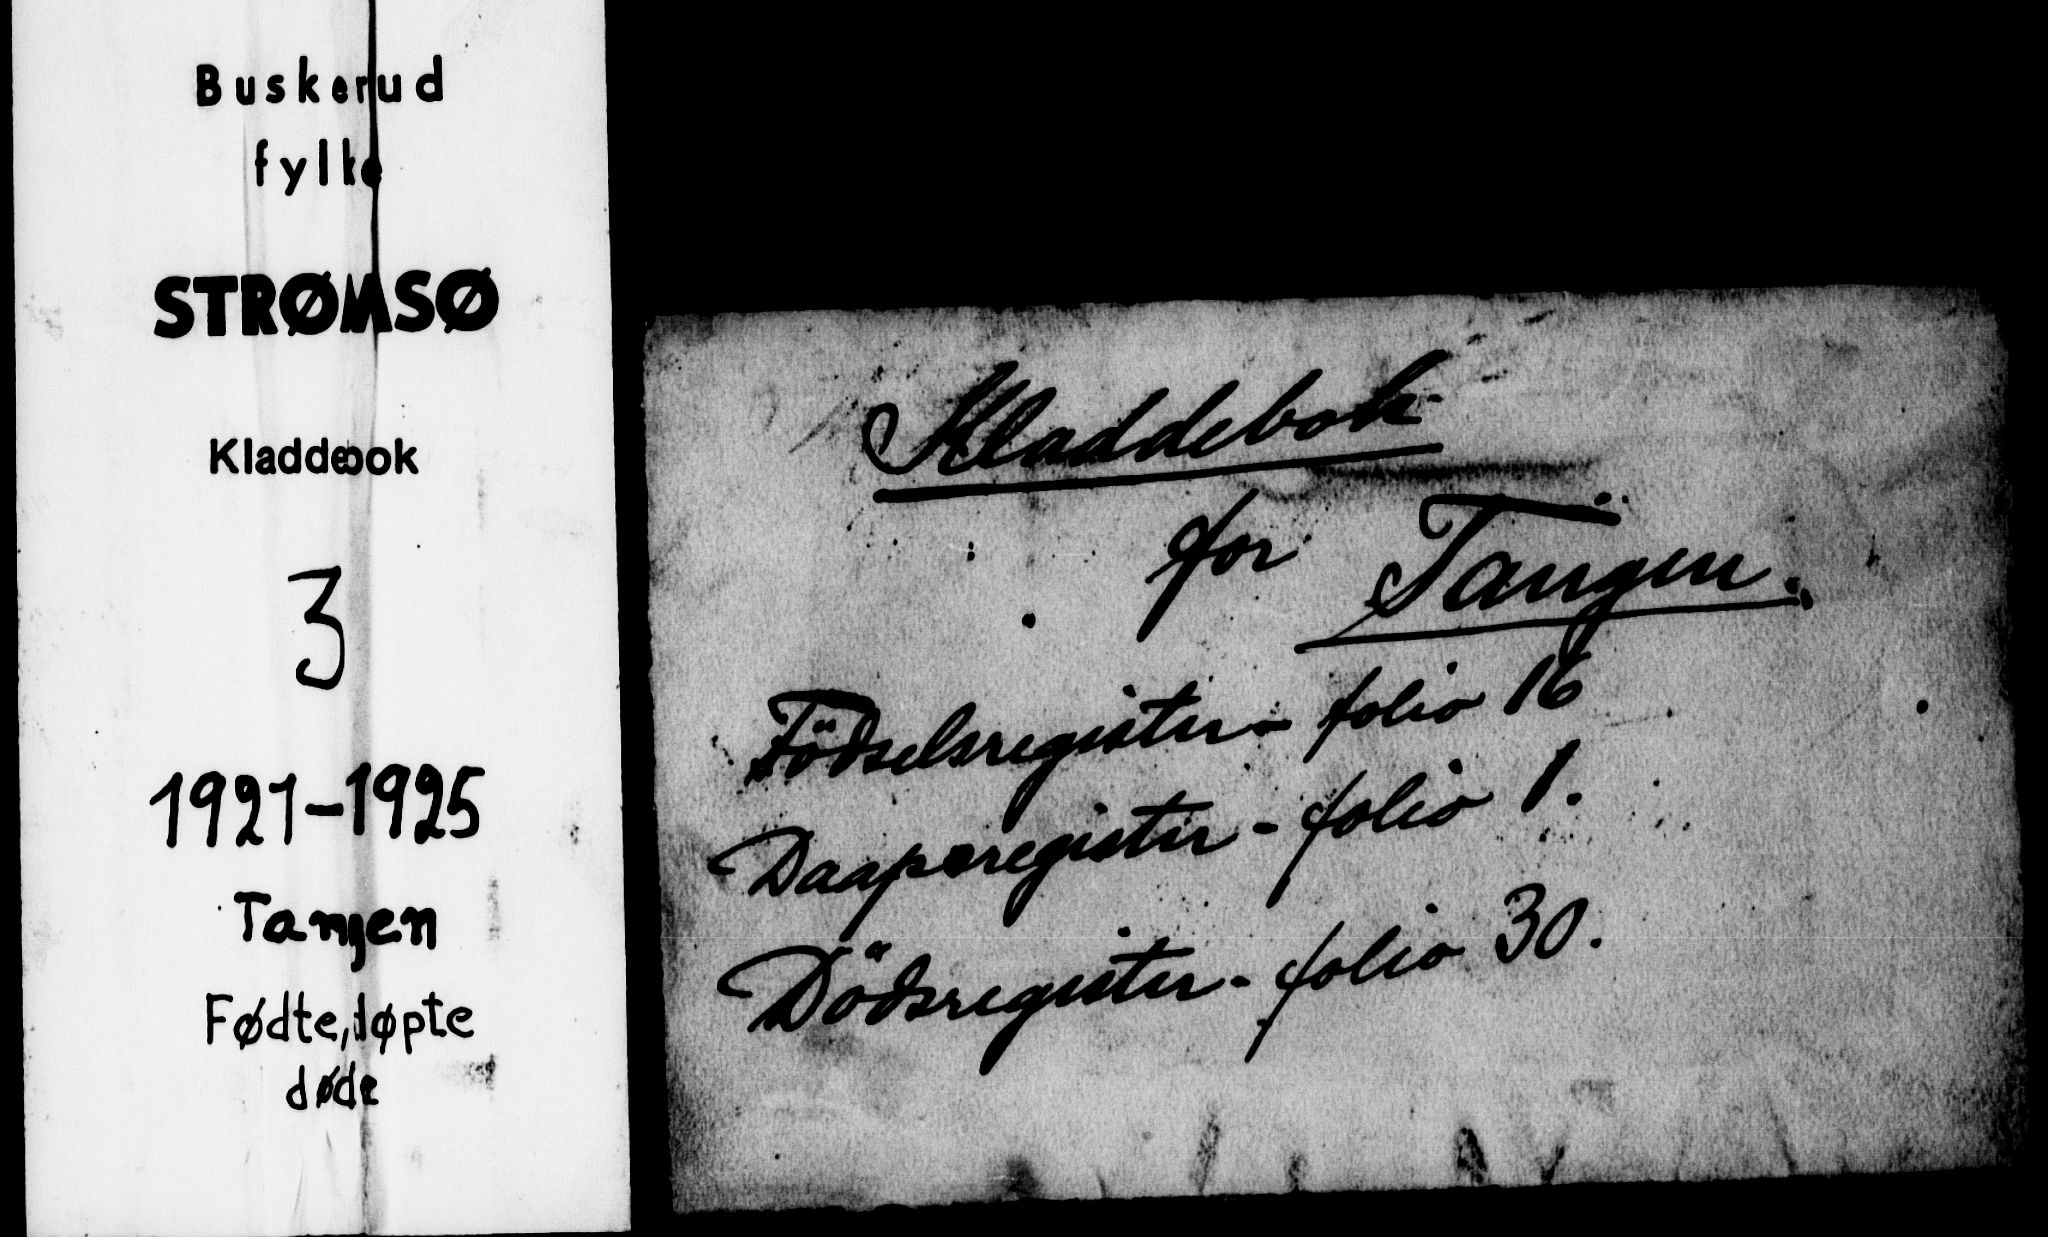 Buskerud
fylke
STRØMSØ
Kladdebok
3
1921-1925
Tangen
Fødte, døpte
døde
Kladdebok
for Tangen.
Födselsregister - folio 16
Daapsregister - folio 1.
Dödsregister - folio 30.